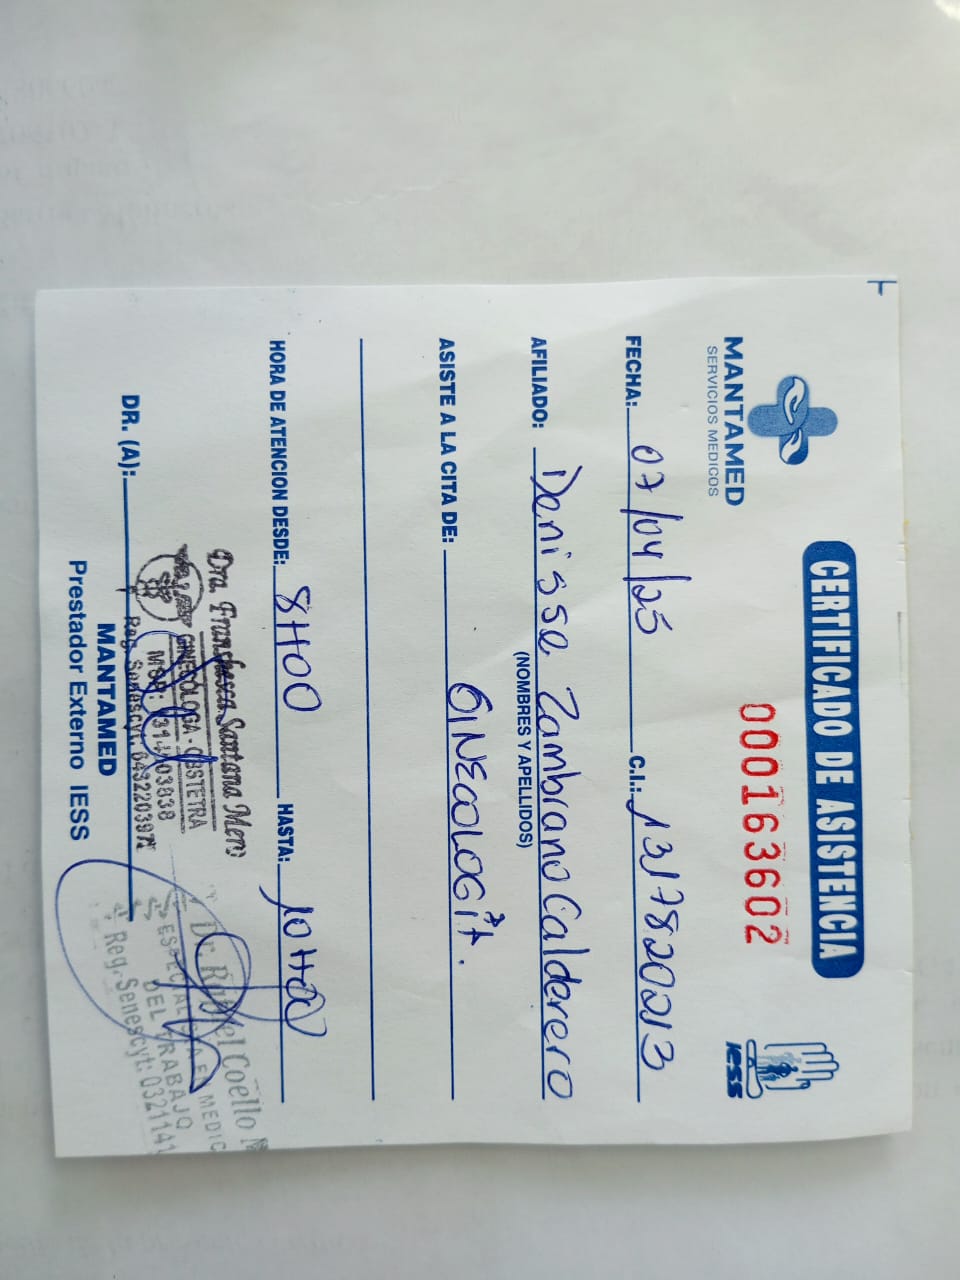 CERTIFICADO DE ASISTENCIA
000163602
MANTAMED
SERVICIOS MEDICOS
IESS
FECHA: 07/04/25 C.I.: 1317820213
AFILIADO: Denisse Zambrano Calderero
(NOMBRES Y APELLIDOS)
ASISTE A LA CITA DE: GINECOLOGíA.
HORA DE ATENCION DESDE: 8H00 HASTA: 10H00
Dra. Franshesca Santana Mero
GINECÓLOGA - OBSTETRA
MSP:
Reg. Senescyt:
Dr. Coello
ESPECIALISTA EN MEDIC
DEL TRABAJO
Reg. Senescyt: 0321141
DR. (A):
MANTAMED
Prestador Externo IESS